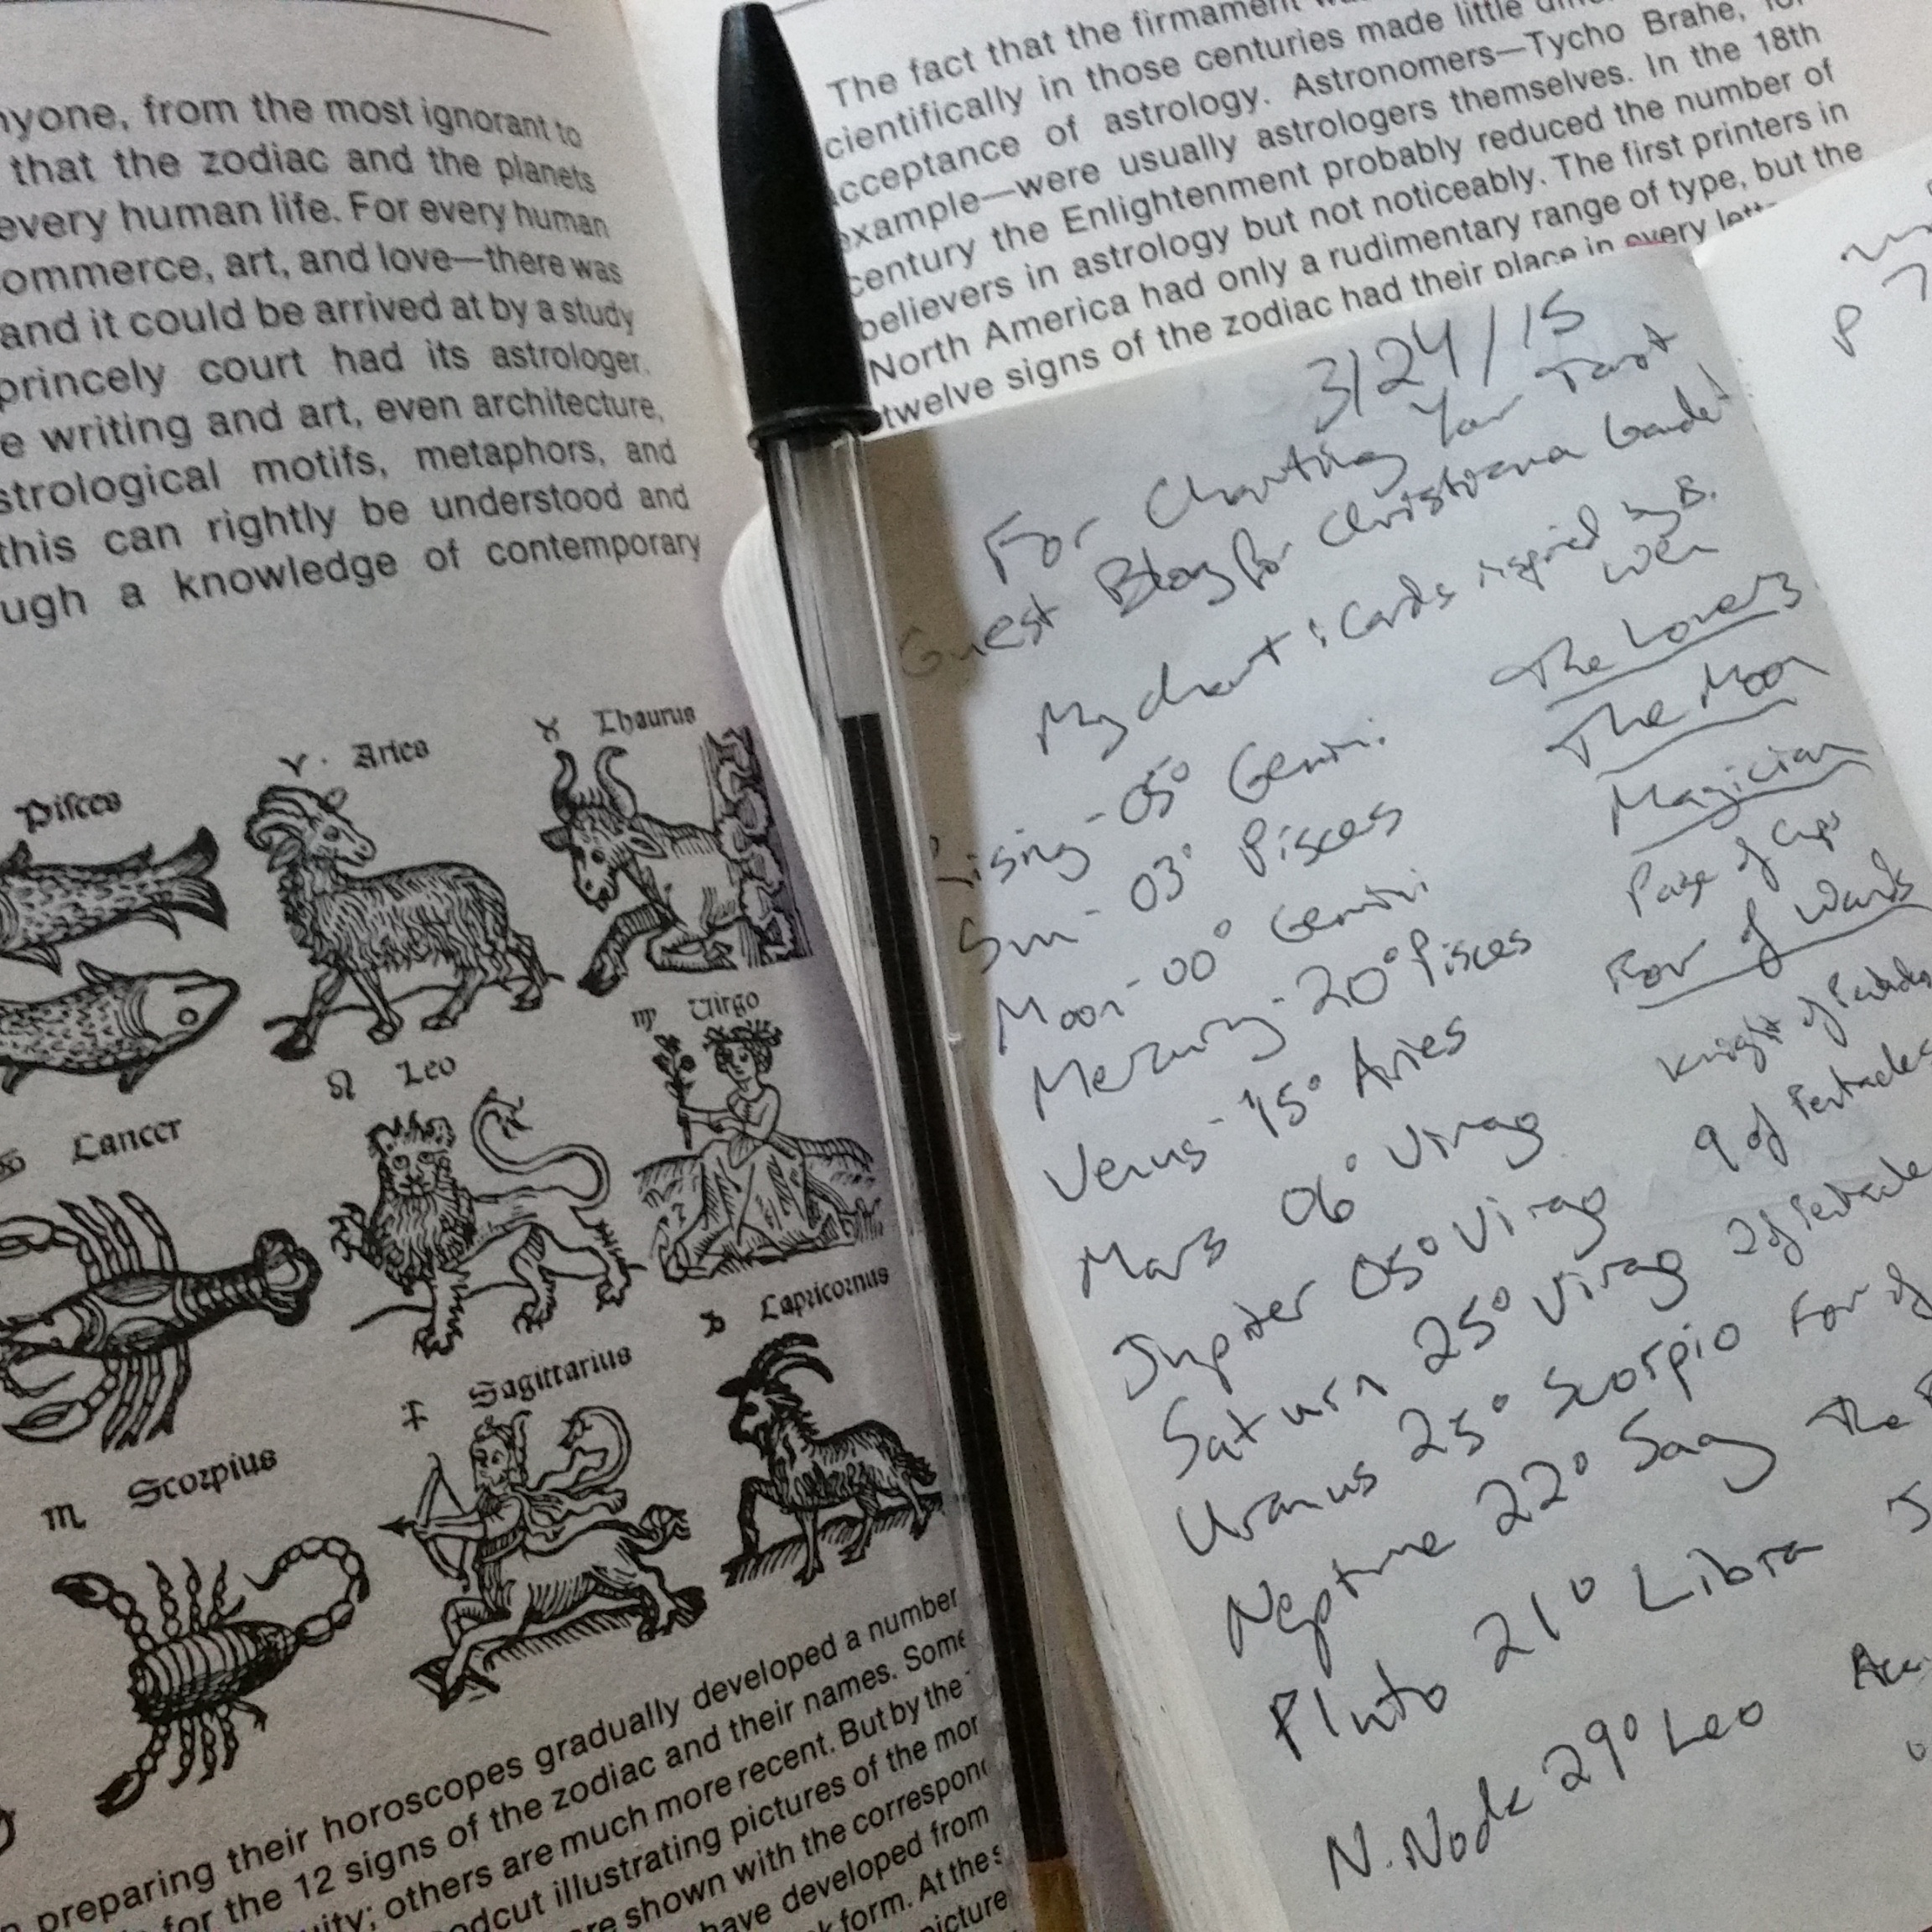 nyone, from the most ignorant to
that the zodiac and the planets
every human life. For every human
ommerce, art, and love—there was
and it could be arrived at by a study
princely court had its astrologer.
e writing and art, even architecture,
strological motifs, metaphors, and
this can rightly be understood and
ugh a knowledge of contemporary
Pisces
♈ Aries
♉ Thaurus
Cancer
♌ Leo
♍ Virgo
♏ Scorpius
♐ Sagittarius
♑ Capricornus
preparing their horoscopes gradually developed a number
for the 12 signs of the zodiac and their names. Some
uity; others are much more recent. But by the
odcut illustrating pictures of the mor
re shown with the correspond
have developed from
k form. At the s
picture
The fact that the firmament
cientifically in those centuries made little
cceptance of astrology. Astronomers—Tycho Brahe, for
example—were usually astrologers themselves. In the 18th
century the Enlightenment probably reduced the number of
believers in astrology but not noticeably. The first printers in
North America had only a rudimentary range of type, but the
twelve signs of the zodiac had their place in every lette
3/24/15
For Charting Your Tarot
Guest Blog for Christiana Gaudet
My chart : Cards inspired by B.
Rising - 05° Gemini. The Lovers
Sun - 03° Pisces The Moon
Moon - 00° Gemini Magician
Mercury - 20° Pisces Page of Cups
Venus - 15° Aries Four of Wands
Mars 06° Virgo Knight of Pentacles
Jupiter 05° Virgo 9 of Pentacles
Saturn 25° Virgo 2 of Pentacle
Uranus 25° Scorpio Four of
Neptune 22° Sag The
Pluto 21° Libra J
N. Node 29° Leo
P 7